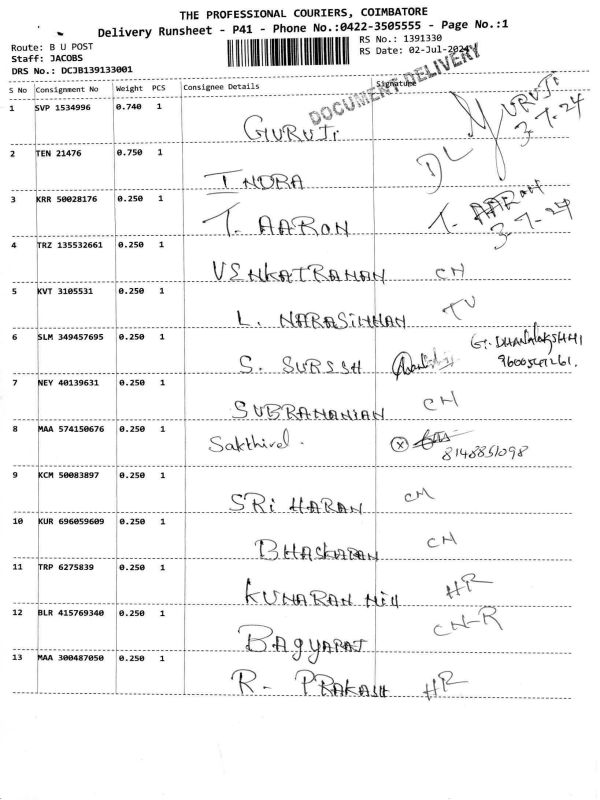 THE PROFESSIONAL COURIERS, COIMBATORE
Delivery Runsheet - P41 - Phone No.:0422-3505555 - Page No.:1
Route: B U POST
RS No.: 1391330
Staff: JACOBS
RS Date: 02-Jul-2024
DRS No.: DCJB139133001
DOCUMENT DELIVERY
S No Consignment No Weight PCS Consignee Details Signature
1 SVP 1534996 0.740 1 GURUJi GURUJi
3-7-24
2 TEN 21476 0.750 1 INDRA DL
3 KRR 50028176 0.250 1 T. AARON T. AARON
3-7-24
4 TRZ 135532661 0.250 1 VSNKATRANAN CN
5 KVT 3105531 0.250 1 L. NARASiNHAN TV
6 SLM 349457695 0.250 1 S. SURSSH G. DHANALAKSHMI
9600547261.
7 NEY 40139631 0.250 1 SUBRANANIAN CN
8 MAA 574150676 0.250 1 Sakthivel. X
8148851098
9 KCM 50083897 0.250 1 SRi HARAN CM
10 KUR 696059609 0.250 1 BHASKARAN CN
11 TRP 6275839 0.250 1 KUNARAN Mill HR
12 BLR 415769340 0.250 1 BAGYARAJ CN-R
13 MAA 300487050 0.250 1 R. PRAKASH HR